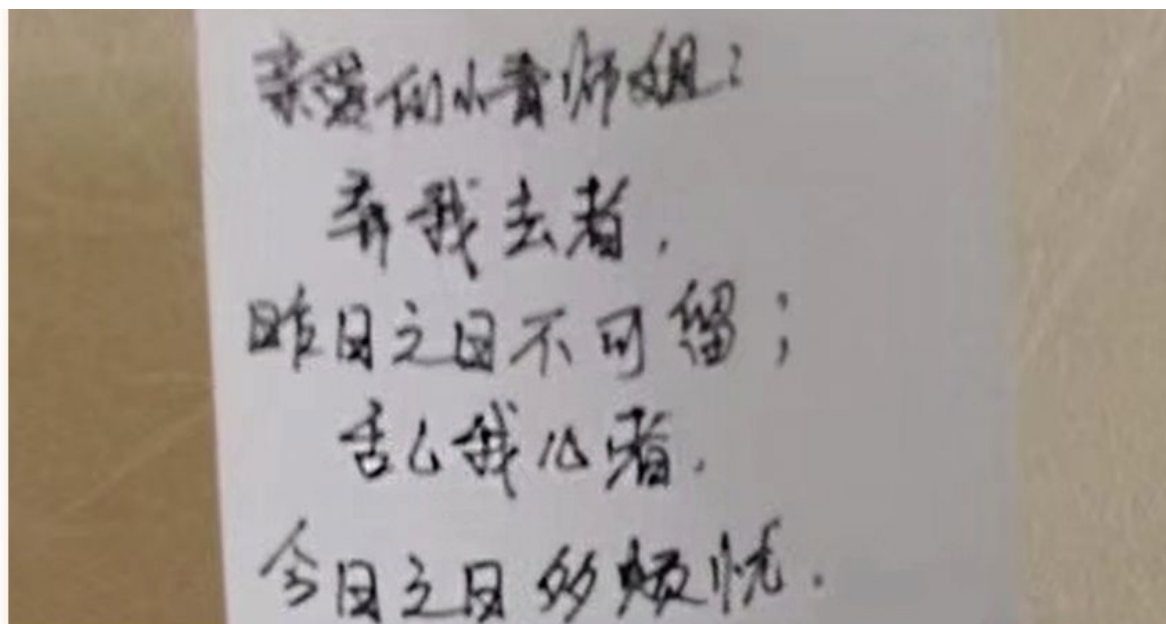 亲爱的小青师姐：
弃我去者，
昨日之日不可留；
乱我心者，
今日之日多烦忧．